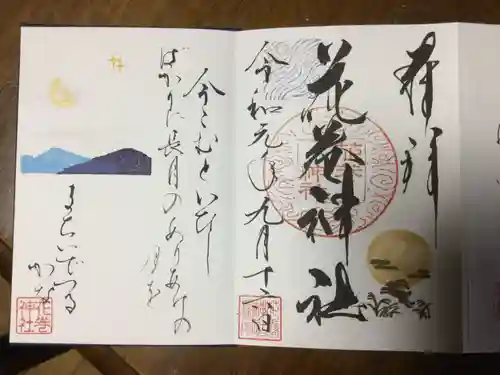 奉拝
花巻神社
令和元年九月十六日
今こむといひし
ばかりに長月のありあけの
月を
まちいでつる
かな
花巻
神社